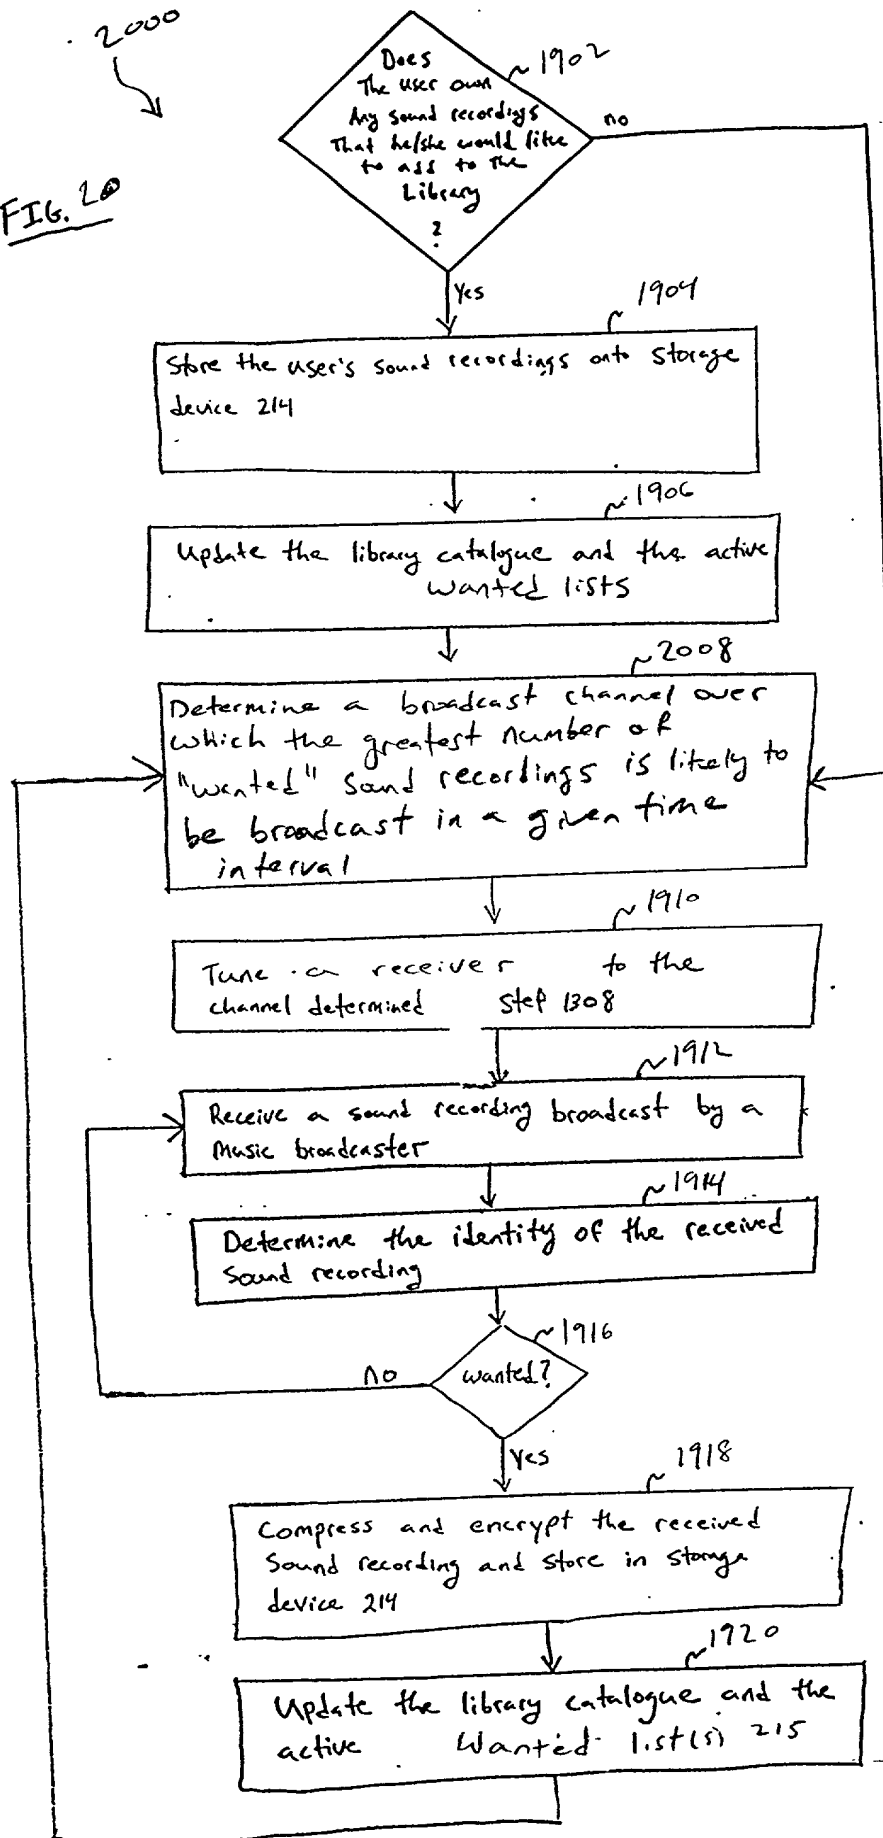 2000
FIG. 20
Does
The user own
Any sound recordings
That he/she would like
to add to the
Library
?
1902
no
Yes
1904
Store the user's sound recordings onto storage
device 214
1906
Update the library catalogue and the active
wanted lists
2008
Determine a broadcast channel over
which the greatest number of
"wanted" sound recordings is likely to
be broadcast in a given time
interval
1910
Tune a receiver to the
channel determined step 1308
1912
Receive a sound recording broadcast by a
Music broadcaster
1914
Determine the identity of the received
Sound recording
1916
wanted?
no
Yes
1918
Compress and encrypt the received
Sound recording and store in storage
device 214
1920
Update the library catalogue and the
active Wanted list(s) 215